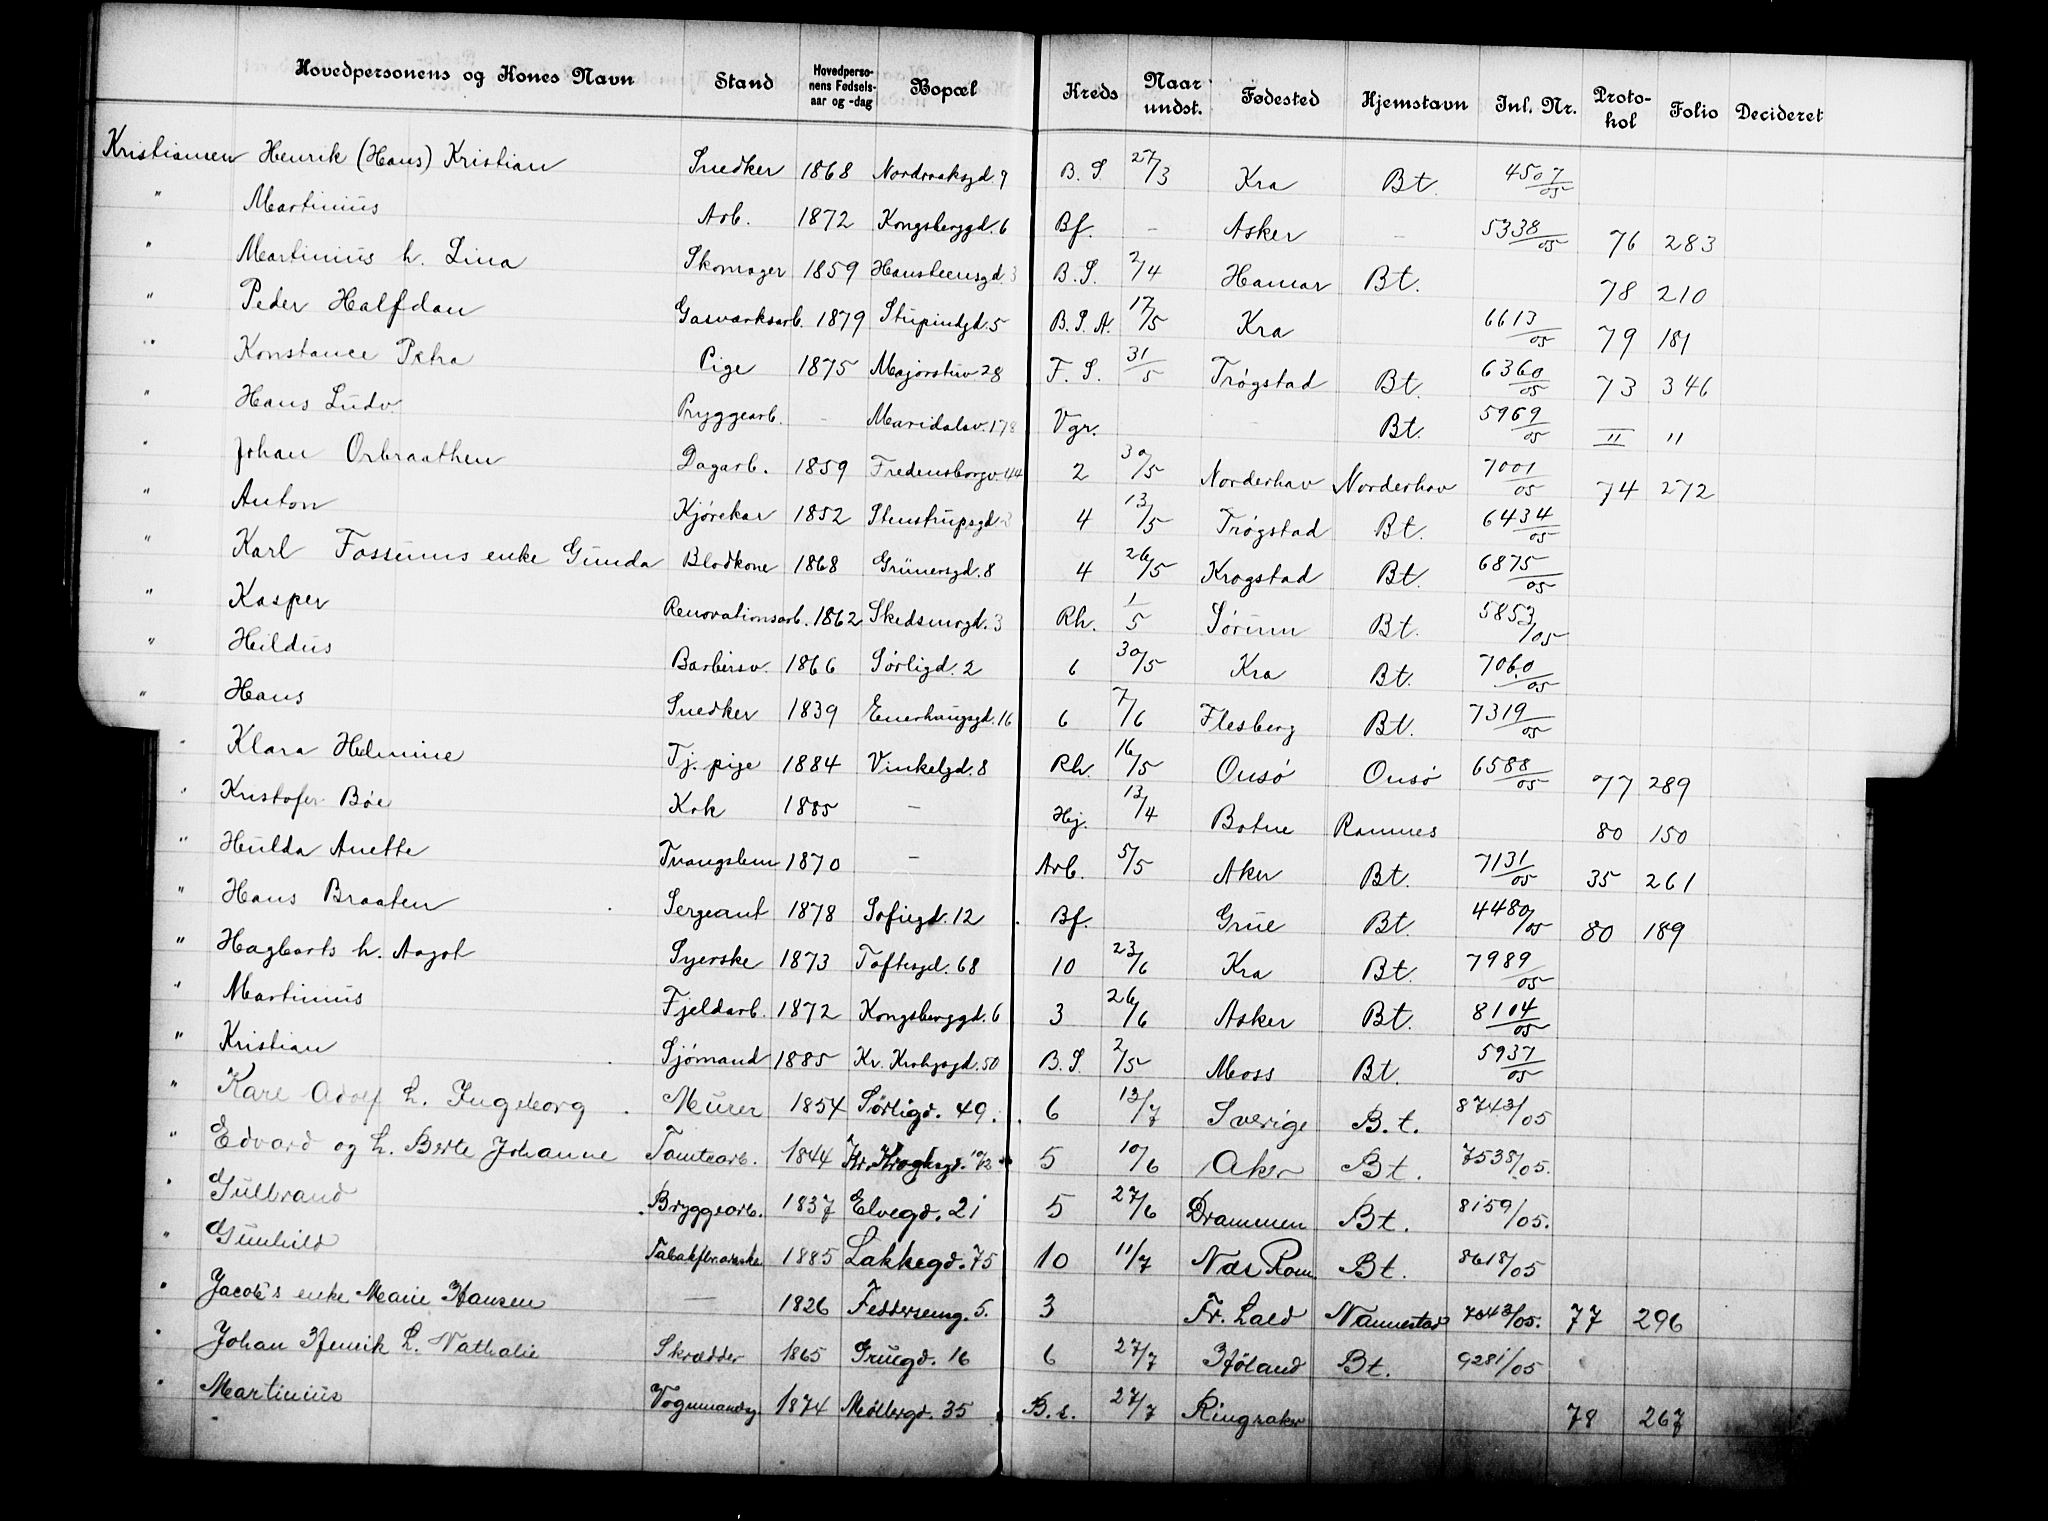 Hovedpersonens og Kones Navn Stand Hovedpersonens Fødselsaar og -dag Bopæl Kreds Naar undst. Fødested Hjemstavn Inl. Nr. Protokol Folio Decideret
Kristiansen Henrik (Hans) Kristian Snedker 1868 Nordraaksgd. 9 B. S. 27/3 Kra Bt. 4507/05
" Martinius Arb. 1872 Kongsberggd. 6 Bf. - Asker - 5338/05 76 283
" Martinius h. Lina Skomager 1859 Hansteensgd. 3 B. S. 2/4 Hamar Bt. 78 210
" Peder Halfdan Gasværksarb. 1879 Stupindgd. 5 B. S. A. 17/5 Kra 6613/05 79 181
" Konstance Petra Pige 1875 Majorstuv 28 F. S. 31/5 Trøgstad Bt. 6360/05 73 346
" Hans Ludv. Bryggearb. - Maridalsv. 178 Vgr. Bt. 5969/05 II 11
" Johan Orbraathen Dagarb. 1859 Fredensborgv. 44 2 30/5 Norderhav Norderhav 7001/05 74 272
" Anton Kjørekar 1852 Stenstrupsgd. 3 4 13/5 Trøgstad Bt. 6434/05
" Karl Fossums enke Gunda Bladkone 1868 Grünersgd. 8 4 26/5 Krogstad Bt. 6875/05
" Kasper Renovationsarb. 1862 Skedsmogd. 3 Rh. 1/5 Sørum Bt. 5853/05
" Hildus Barbersv. 1866 Sørligd. 2 6 30/5 Kra Bt. 7060/05
" Hans Snedker 1839 Enerhaugsgd. 16 6 7/6 Flesberg Bt. 7319/05
" Klara Helmine Tj. pige 1884 Vinkelgd. 8 Rh. 16/5 Onsø Onsø 6588/05 77 289
" Kristofer Bøe Kok 1885 - Hj. 13/4 Botne Ramnes 80 150
" Hulda Anette Tvangslem 1870 - Arb. 5/5 Aker Bt. 7131/05 35 261
" Hans Braaten Sergeant 1878 Sofiegd. 12 Bf. Grue Bt. 4480/05 80 189
" Hagbarts h. Aagot Syerske 1873 Toftesgd. 68 10 23/6 Kra Bt. 7989/05
" Martinius Fjeldarb. 1872 Kongsberggd. 6 3 26/6 Asker Bt. 8104/05
" Kristian Sjømand 1885 Kr. Krohgsgd. 50 B. S. 2/5 Moss Bt. 5937/05
" Karl Adolf h. Ingeborg Murer 1854 Sørligd. 49. 6 13/7 Sverige B.t. 8743/05
" Edvard og h. Berte Johanne Tomtearb. 1844 Kr. Kroghsgd. 5 10/6 Aker Bt. 7538/05.
" Gulbrand Bryggearb. 1837 Elvegd. 21 5 27/6 Drammen Bt. 8159/05.
" Gunhild 1885 Lakkegd. 75 10 11/7 Næs Rom. Bt. 8618/05
" Jacob's enke Marie Hansen - 1826 Feddersensg. 5. 3 Fr. Hald Nannestad 7043/05. 77 296
" Johan Henrik h. Nathalie Skrædder 1865 Gruegd. 16 6 27/7 Høland Bt. 9281/05
" Martinius Vognmandsg 1874 Møllergd. 35 B.s. 27/7 Ringsaker 78 267